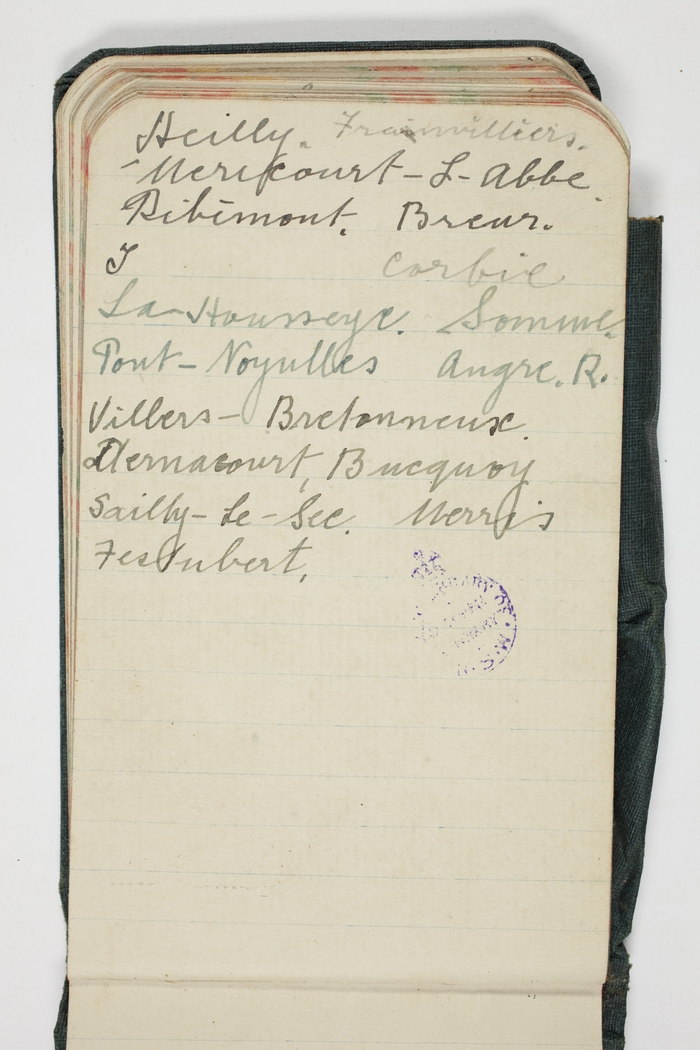 Heilly. Frainvilliers.
Mericourt-L-Abbe.
Ribemont. Breur.
I Corbie
La-Housseye. Somme.
Pont-Noyulles Angre. R.
Villers-Bretonneux
Dernacourt, Bucquoy
Sailly-Le-Sec. Merris
Festubert.
LIBRARY OF
N.S.